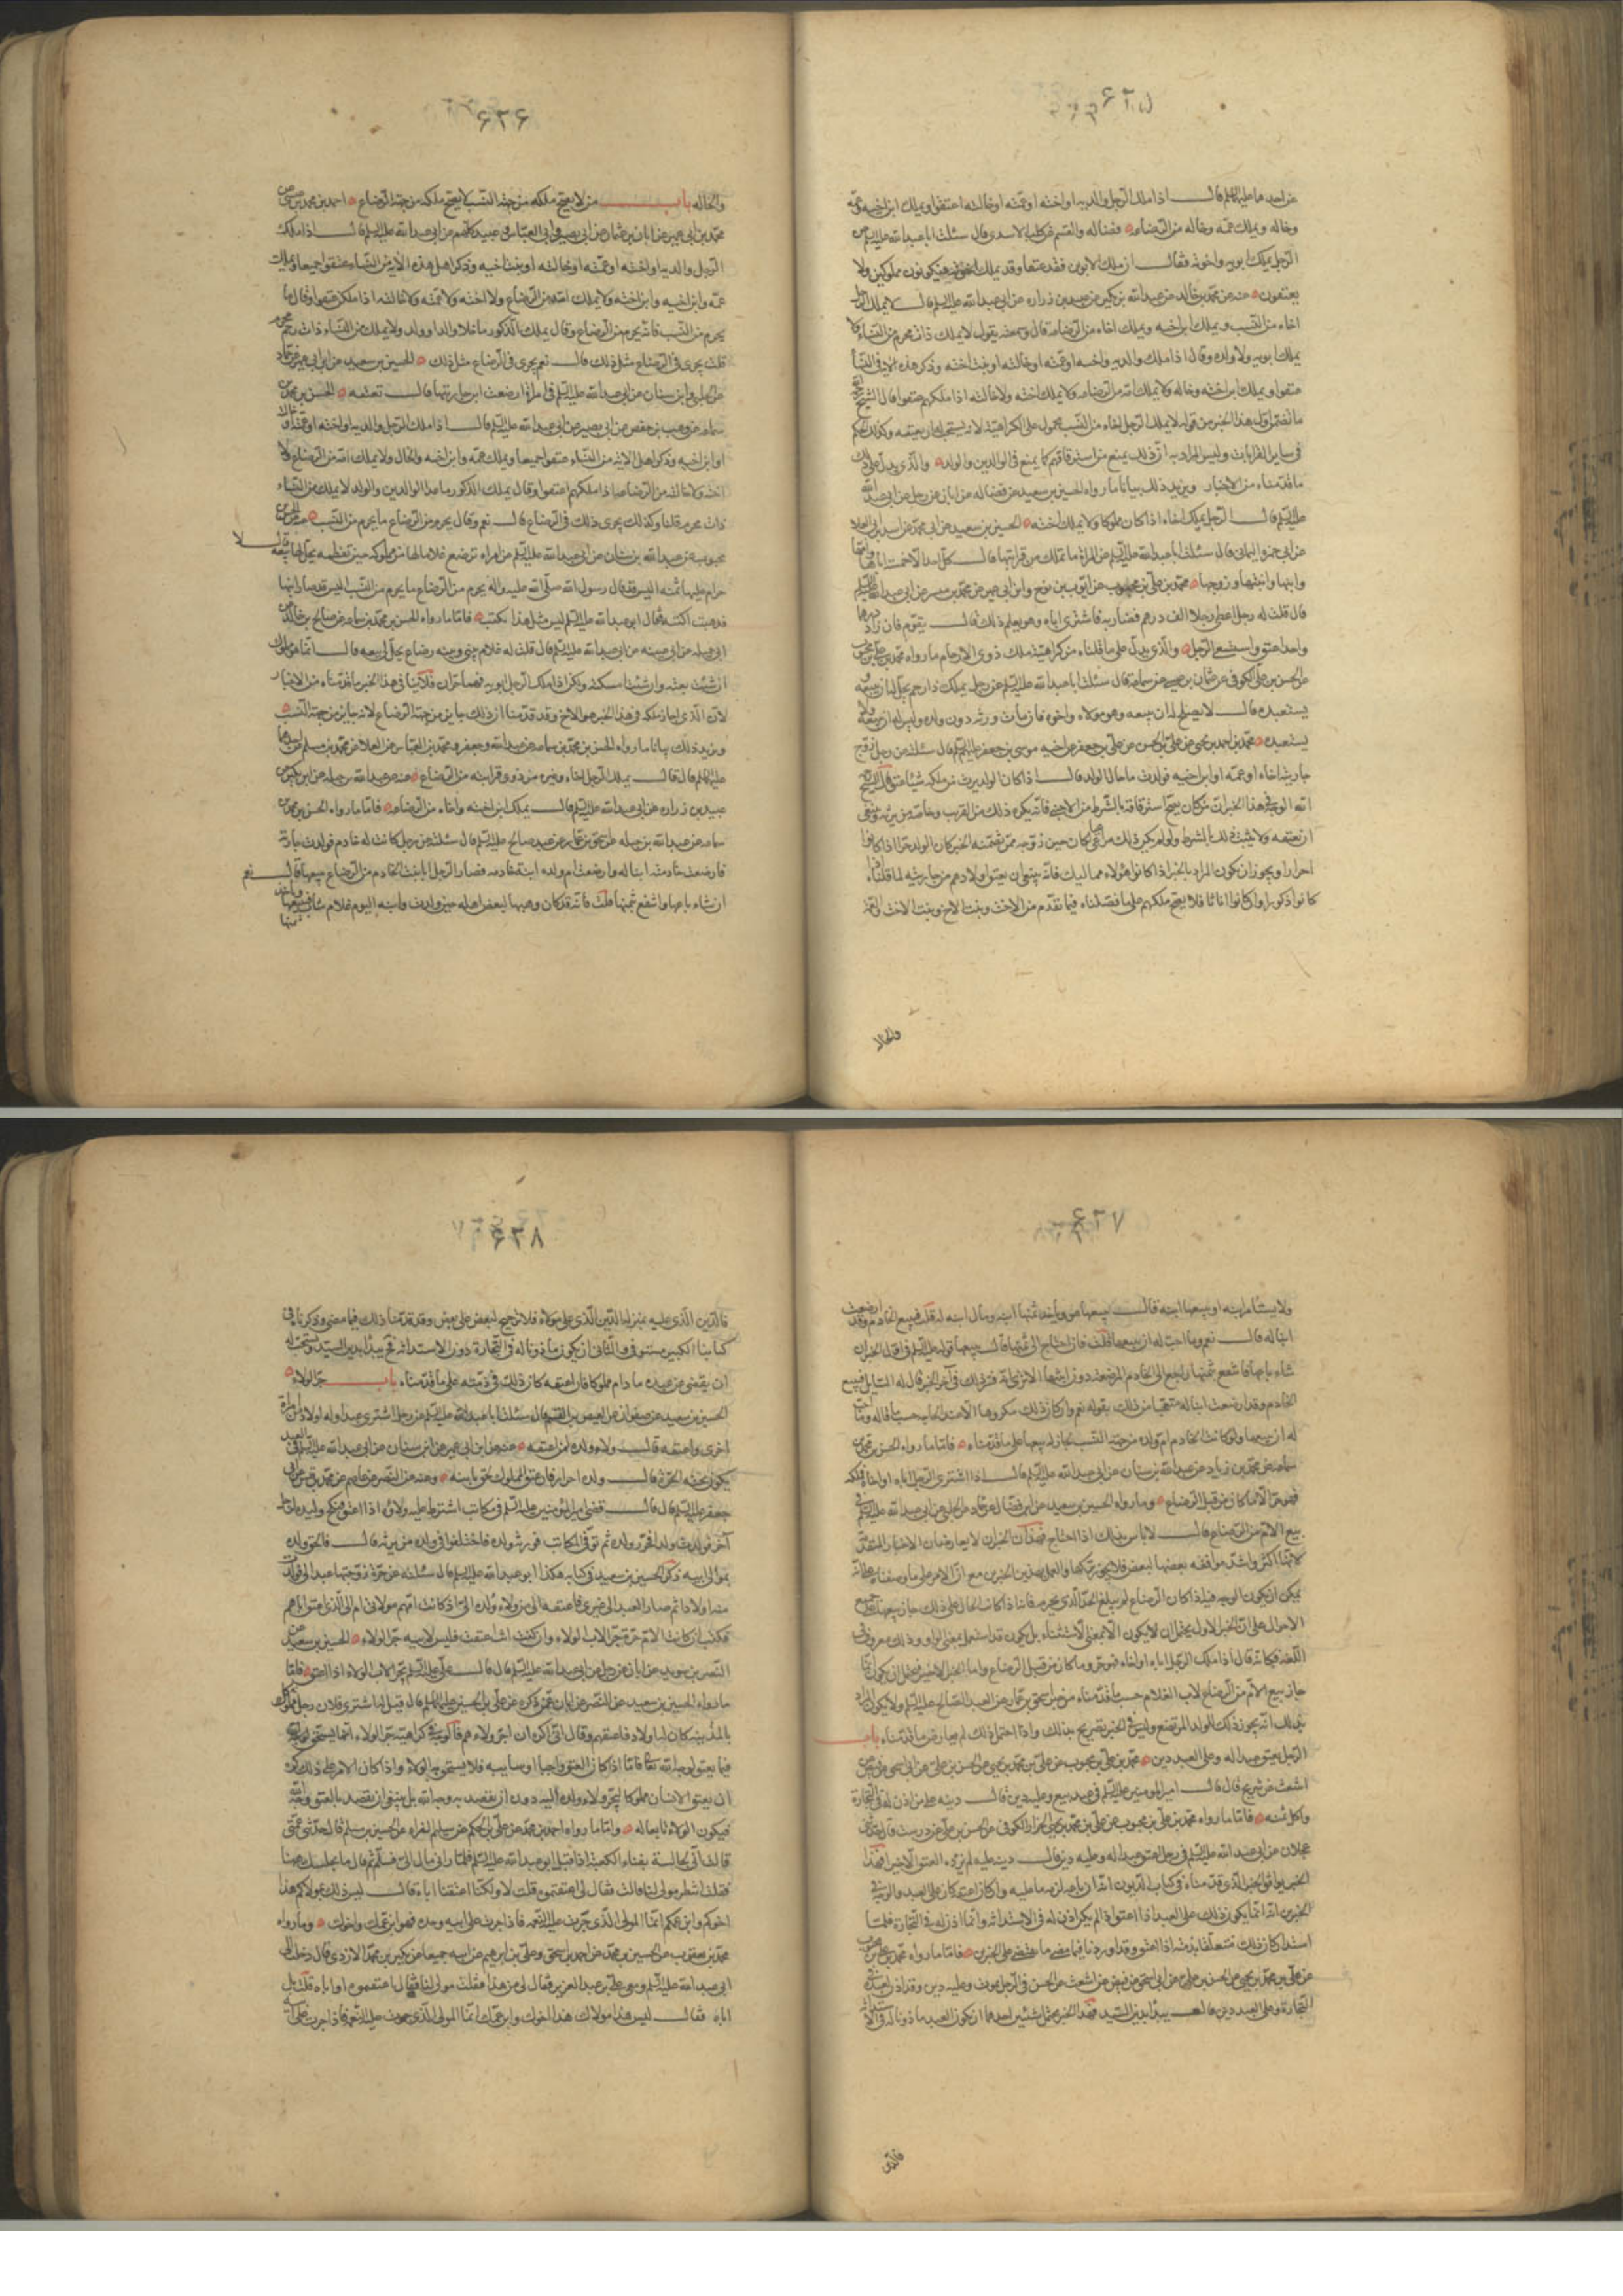 ۶۲۵
عن احدهما عليهما السلام قال اذا ملك الرجل والديه او اخته او عمته او خالته اعتقوا ويملك ابن اخيه وعمه
وخاله ويملك عمه وخاله من الرضاعة فضالة والقسم عن كليب الاسدى قال سئلت ابا عبد الله عليه السلم عن
الرجل يملك ابويه واخوته فقال ان ملك الابوين فقد عتقا وقد يملك اخوته فيكونون مملوكين ولا
يعتقون عنه عن محمد بن خالد عن عبد الله بن بكير عن عبيد بن زراره عن ابى عبد الله عليه السلم قال لا يملك الرجل
اخاه من النسب ويملك ابن اخيه ويملك اخاه من الرضاعة قال وسمعته يقول لا يملك ذات محرم من النساء ولا
يملك ابويه ولا ولده وقال اذا ملك والديه او اخته او عمته او خالته او بنت اخته وذكر هذه الاية من النسا
عتقوا ويملك ابن اخته وخاله ولا يملك امه من الرضاعه ولا يملك اخته ولا خالته اذا ملكهم عتقوا قال الشيخ
ما تضمن اول هذا الخبر من قوله لا يملك الرجل اخاه من النسب محمول على الكراهية لانه يستحب له ان يعتقه وكذلك الحكم
فى ساير القرابات وليس المراد به ان ذلك يمنع من استرقاقهم كما يمنع فى الوالدين والولد والذى يدل على ذلك
ما قدمناه من الاخبار ويزيد ذلك بيانا ما رواه الحسين بن سعيد عن فضاله عن ابان عن رجل عن ابى عبد الله
عليه السلم قال الرجل يملك اخاه اذا كان مملوكا ولا يملك اخته الحسين بن سعيد عن ابى محمد عن اسد بن ابى العلا
عن ابى حمزه الثمالى قال سئلت ابا عبد الله عليه السلم عن المراة ما تملك من قرابتها قال كل احد الا خمسة اباها وامها
وابنها وابنتها وزوجها محمد بن على بن محبوب عن ايوب بن نوح وابن ابى عمير عن محمد بن ميسر عن ابى عبد الله عليه السلم
قال قلت له رجل اعطى رجلا الف درهم مضاربه فاشترى اباه وهو لا يعلم ذلك قال يقوم فان زاد درهما
واحدا عتق واستسعى الرجل والذى يدل على ما قلناه من كراهية ملك ذوى الارحام ما رواه محمد بن على بن محبوب
عن الحسن بن على الكوفى عن عثمان بن عيسى عن سماعة قال سئلت ابا عبد الله عليه السلم عن رجل يملك ذا رحم يحل له ان يبيعه او
يستعبده قال لا يصلح له ان يبيعه وهو مولاه واخوه فان مات ورثه دون ولده وليس له ان يبيعه ولا
يستعبده محمد بن احمد بن يحيى عن على بن الحسن عن على بن جعفر عن اخيه موسى بن جعفر عليهما السلم قال سئلته عن رجل زوج
جاريته اخاه او عمه او ابن اخيه فولدت ما حال الولد قال اذا كان الولد يرث من ملكه شيئا عتق قال الشيخ
احرارا ويجوز ان يكون المراد بالخبر اذا كانوا هؤلاء مماليك فانه ينبغى ان يعتق اولادهم من جاريته لما قلناه
كانوا ذكورا وان كانوا اناثا فلا يصح ملكهم على ما فصلناه فيما تقدم من الاخت وبنت الاخ وبنت الاخت والعمة
والخاله
۶۲۶
والخاله باب من لا يصح ملكه من جهة النسب لا يصح ملكه من جهة الرضاع احمد بن محمد بن عيسى عن
محمد بن ابى عمير عن ابان بن عثمان عن ابى بصير وابى العباس وعبيد كلهم عن ابى عبد الله عليه السلم قال اذا ملك
الرجل والديه او اخته او عمته او خالته او بنت اخيه وذكر اهل هذه الاية من النساء عتقوا جميعا ويملك
عمه وابن اخيه وابن اخته ولا يملك امه من الرضاع ولا اخته ولا عمته ولا خالته اذا ملكن عتقوا وقال ما
يحرم من النسب فانه يحرم من الرضاع وقال يملك الذكور ما خلا والدا وولدا ولا يملك من النساء ذات رحم محرم
قلت يجرى فى الرضاع مثل ذلك قال نعم يجرى فى الرضاع مثل ذلك الحسين بن سعيد عن ابن ابى عمير عن حماد
عن الحلبى وابن سنان عن ابى عبد الله عليه السلم فى امراة ارضعت ابن جاريتها قال تعتقه الحسن بن محمد بن
سماعه عن وهيب بن حفص عن ابى بصير عن ابى عبد الله عليه السلم قال اذا ملك الرجل والديه او اخته او عمته او خالته
او ابن اخيه وذكر اهل الاية من النساء عتقوا جميعا ويملك عمه وابن اخيه والخال ولا يملك امه من الرضاع ولا
اخته ولا خالته من الرضاعه اذا ملكهم اعتقوا وقال يملك الذكور ما عدا الوالدين والولد لا يملك من النساء
ذات محرم قلنا وكذلك يجرى ذلك فى الرضاع قال نعم وقال يحرم من الرضاع ما يحرم من النسب عنه عن الحسن بن
محبوب عن عبد الله بن سنان عن ابى عبد الله عليه السلم عن امراه ترضع غلاما لها من مملوكه حتى تفطمه يحل لها بيعه قال لا
حرام عليها ثمنه اليس قد قال رسول الله صلى الله عليه واله يحرم من الرضاع ما يحرم من النسب اليس قد صار ابنها
فذهبت اكتبه فقال ابو عبد الله عليه السلم ليس مثل هذا يكتب فاما ما رواه الحسن بن محمد بن سماعه عن صالح بن خالد عن
ابى جميله عن ابى عيينه عن ابى عبد الله عليه السلم قال قلت له غلام بينى وبينه رضاع يحل لى بيعه قال انما هو مملوك
ان شئت بعته وان شئت امسكته ولكن اذا ملك الرجل ابويه فهما حران فلا ينافى هذا الخبر ما قدمناه من الاخبار
لان الذى اجاز ملكه فى هذا الخبر هو الاخ وقد قدمنا ان ذلك جايز من جهة الرضاع لانه جايز من جهة النسب
ويزيد ذلك بيانا ما رواه الحسن بن محمد بن سماعه عن عبد الله وجعفر ومحمد بن العباس عن العلا عن محمد بن مسلم عن احدهما
عليهما السلم قال قال يملك الرجل اخاه وغيره من ذوى قرابته من الرضاع عنه عن عبد الله بن جبله عن ابن بكير عن
عبيد بن زراره عن ابى عبد الله عليه السلم قال يملك ابن اخته واخاه من الرضاعه فاما ما رواه الحسن بن محمد بن
سماعه عن عبد الله بن جبله عن اسحق بن عمار عن عبد صالح عليه السلم قال سئلته عن رجل كانت له خادم فولدت جاريه
فارضعت خادمه ابنا له وارضعت ام ولده ابنة خادمه فصار الرجل ابا بنت الخادم من الرضاع يبيعها قال نعم
ان شاء باعها وانتفع بثمنها قلت فانه قد كان وهبها لبعض اهله حين ولدت وابنه اليوم غلام شاب فيبيعها وياخذ ثمنها
۶۲۷
ولا يستامر ابنه او يبيعها ابنه قال يبيعها هو وياخذ ثمنها ابنه ومال ابنه له قلت فيبيع الخادم وقد ارضعت
ابنا له قال نعم وما احب له ان يبيعها قلت فان احتاج الى ثمنها قال يبيعها قوله عليه السلم فى اول الخبر ان
شاء باعها فانتفع بثمنها راجع الى الخادم المرضعه دون ابنتها الا ترى انه فسر ذلك فى آخر الخبر قال له السايل فيبيع
الخادم وقد ارضعت ابنا له متعجبا من ذلك بقوله نعم وان كان ذلك مكروها الا عند الحاجه حسب ما قاله وما احب
له ان يبيعها ولو كانت الخادم ام ولده من جهة النسب لجاز له بيعها على ما قدمناه فاما ما رواه الحسن بن محمد بن
سماعه عن محمد بن زياد عن عبد الله بن سنان عن ابى عبد الله عليه السلم قال اذا اشترى الرجل اباه او اخاه فملكه
فهو حر الا ما كان من قبل الرضاع وما رواه الحسين بن سعيد عن ابن فضال عن حماد عن الحلبى عن ابى عبد الله عليه السلم فى
بيع الام من الرضاع قال لا باس بذلك اذا احتاج فهذان الخبران لا يعارضان الاخبار المتقدمة
لانها اكثر واشد موافقه بعضها لبعض فلا يجوز تركها والعمل بهذين الخبرين مع ان الامر على ما وصفناه على انه
يمكن ان يكون الوجه فيه اذا كان الرضاع لم يبلغ الحد الذى يحرم فانه اذا كانت الحال على ذلك جاز بيعها على جميع
الاحوال على ان الخبر الاول يحتمل ان لا يكون الا بمعنى الاستثناء بل يكون قد استعمل بمعنى الواو وذلك معروف فى
اللغه فكانه قال اذا ملك الرجل اباه او اخاه فهو حر وما كان من قبل الرضاع واما الخبر الاخير فيحتمل ان يكون انما
جاز بيع الام من الرضاع لاب الغلام حسب ما قدمناه من خبر اسحق بن عمار عن العبد الصالح عليه السلم ولا يكون المراد
بذلك انه يجوز ذلك للولد المرتضع وليس فى الخبر تصريح بذلك واذا احتمل ذلك لم يعارض ما قدمناه باب
الرجل يعتق عبدا له وعلى العبد دين محمد بن على بن محبوب عن على بن محمد بن يحيى عن الحسن بن على عن ابى اسحق عن فيض عن
اشعث عن شريح قال قال امير المؤمنين عليه السلم فى عبد بيع وعليه دين قال دينه على من اذن له فى التجارة
واكل ثمنه فاما ما رواه محمد بن على بن محبوب عن على بن محمد بن يحيى الخزاز الكوفى عن الحسن بن على عن درست قال حدثنى
عجلان عن ابى عبد الله عليه السلم فى رجل اعتق عبدا له وعليه دين قال دينه عليه لم يزده العتق الا خيرا فهذا
الخبر يوافق الخبر الذى قدمناه فى كتاب الديون انه ان باعه لزمه ما عليه وان كان اعتقه كان على العبد والوجه فى
الخبرين انه انما يكون ذلك على العبد اذا اعتق اذا لم يكن اذن له فى الاستدانه وانما اذن له فى التجارة فلما
استدان كان ذلك متعلقا بذمته اذا اعتق وقد اوردنا فيما مضى ما يقتضى على الخبرين فاما ما رواه محمد بن على بن محبوب
عن على بن محمد بن يحيى عن الحسن بن على عن ابى اسحق عن فيض عن اشعث عن الحسن فى الرجل يموت وعليه دين وقد اذن لعبده فى
التجارة وعلى العبد دين قال يبدا بدين السيد فهذا الخبر يحتمل شيئين احدهما ان يكون العبد ماذونا له فى الاستدانة
فالدين
۶۲۸
فالدين الذى عليه بمنزلة الدين الذى على مولاه فلا ترجيح لبعض على بعض وقد قدمنا ذلك فيما مضى وذكرناه فى
كتابنا الكبير مستوفى والثانى ان يكون ماذونا له فى التجارة دون الاستدانه فح يبدا بدين السيد ويستحب له
ان يقضى عن عبده ما دام مملوكا فان اعتقه كان ذلك فى ذمته على ما قدمناه باب جر الولاء
الحسين بن سعيد عن صفوان عن العيص بن القسم قال سئلت ابا عبد الله عليه السلم عن رجل اشترى عبدا وله اولاد من امراة
اخرى واعتقه قال ولاء ولده لمن اعتقه عنه عن ابن ابى عمير عن ابن سنان عن ابى عبد الله عليه السلم فى العبد
يكون تحته الحرة قال ولده احرار فان عتق المملوك لحق بابيه وعنه عن النضر عن عاصم عن محمد بن قيس عن ابى
جعفر عليه السلم قال قال قضى امير المؤمنين عليه السلم فى مكاتب اشترط عليه ولاؤه اذا اعتق فنكح وليدة لرجل
آخر فولدت ولدا فحرر ولده ثم توفى المكاتب فورثه ولده فاختلفوا فى ولده من يرثه قال فالحق ولده
بموالى ابيه ذكر الحسين بن سعيد فى كتابه هكذا ابو عبد الله عليه السلم قال سئلته عن حرة زوجتها عبدا لى فولدت
منه اولادا ثم صار العبد الى غيرى فاعتقه الى من ولاء ولده الى اذ كانت امهم مولاتى ام الى الذى اعتق اباهم
فكتب ان كانت الام حرة جر الاب الولاء وان كنت انت اعتقت فليس لابيه جر الولاء الحسين بن سعيد عن
النضر بن سويد عن ابان عن رجل عن ابى عبد الله عليه السلم قال قال على عليه السلم يجر الاب الولاء اذا اعتق فاما
ما رواه الحسين بن سعيد عن النضر عن ابان عمن ذكره عن على بن الحسين عليهما السلم قال قيل له اشترى فلان رجلا مملوكا
بالمدينه كان له اولاد فاعتقهم وقال انى اكره ان اجر ولاءهم فالوجه فى كراهية جر الولاء انما يستحق لوجه
فيما يعتق لوجه الله تعالى فاما اذا كان العتق واجبا او سايبه فلا يستحق به الولاء واذا كان الامر على ذلك كره
ان يعتق الانسان مملوكا ليجر ولاء ولده اليه دون ان يقصد به وجه الله بل ينبغى ان يقصد بالعتق وجه الله
فيكون الولاء تابعا له واما ما رواه احمد بن محمد عن على بن الحكم عن سليم الفراء عن الحسين بن مسلم قال حدثتنى عمتى
قالت انى لجالسة بفناء الكعبة اذ اقبل ابو عبد الله عليه السلم فلما رانى مال الى فسلم ثم قال ما يجلسك ههنا
فقلت انتظر مولى لنا قالت فقال لى اعتقتموه قلت لا ولكنا اعتقنا اباه قال ليس ذلك بمولاكم هذا
اخوكم وابن عمكم انما المولى الذى جرت عليه النعمه فاذا جرت على ابيه وجده فهو ابن عمك واخوك وما رواه
محمد بن يعقوب عن الحسين بن محمد عن احمد بن اسحق وعلى بن ابراهيم عن ابيه جميعا عن بكر بن محمد الازدى قال دخلت الى
ابى عبد الله عليه السلم ومعى على بن عبد العزيز فقال لى من هذا فقلت مولى لنا فقال اعتقتموه او اباه قلت بل
اباه فقال ليس هذا مولاك هذا اخوك وابن عمك انما المولى الذى جرت عليه النعمه فاذا جرت على